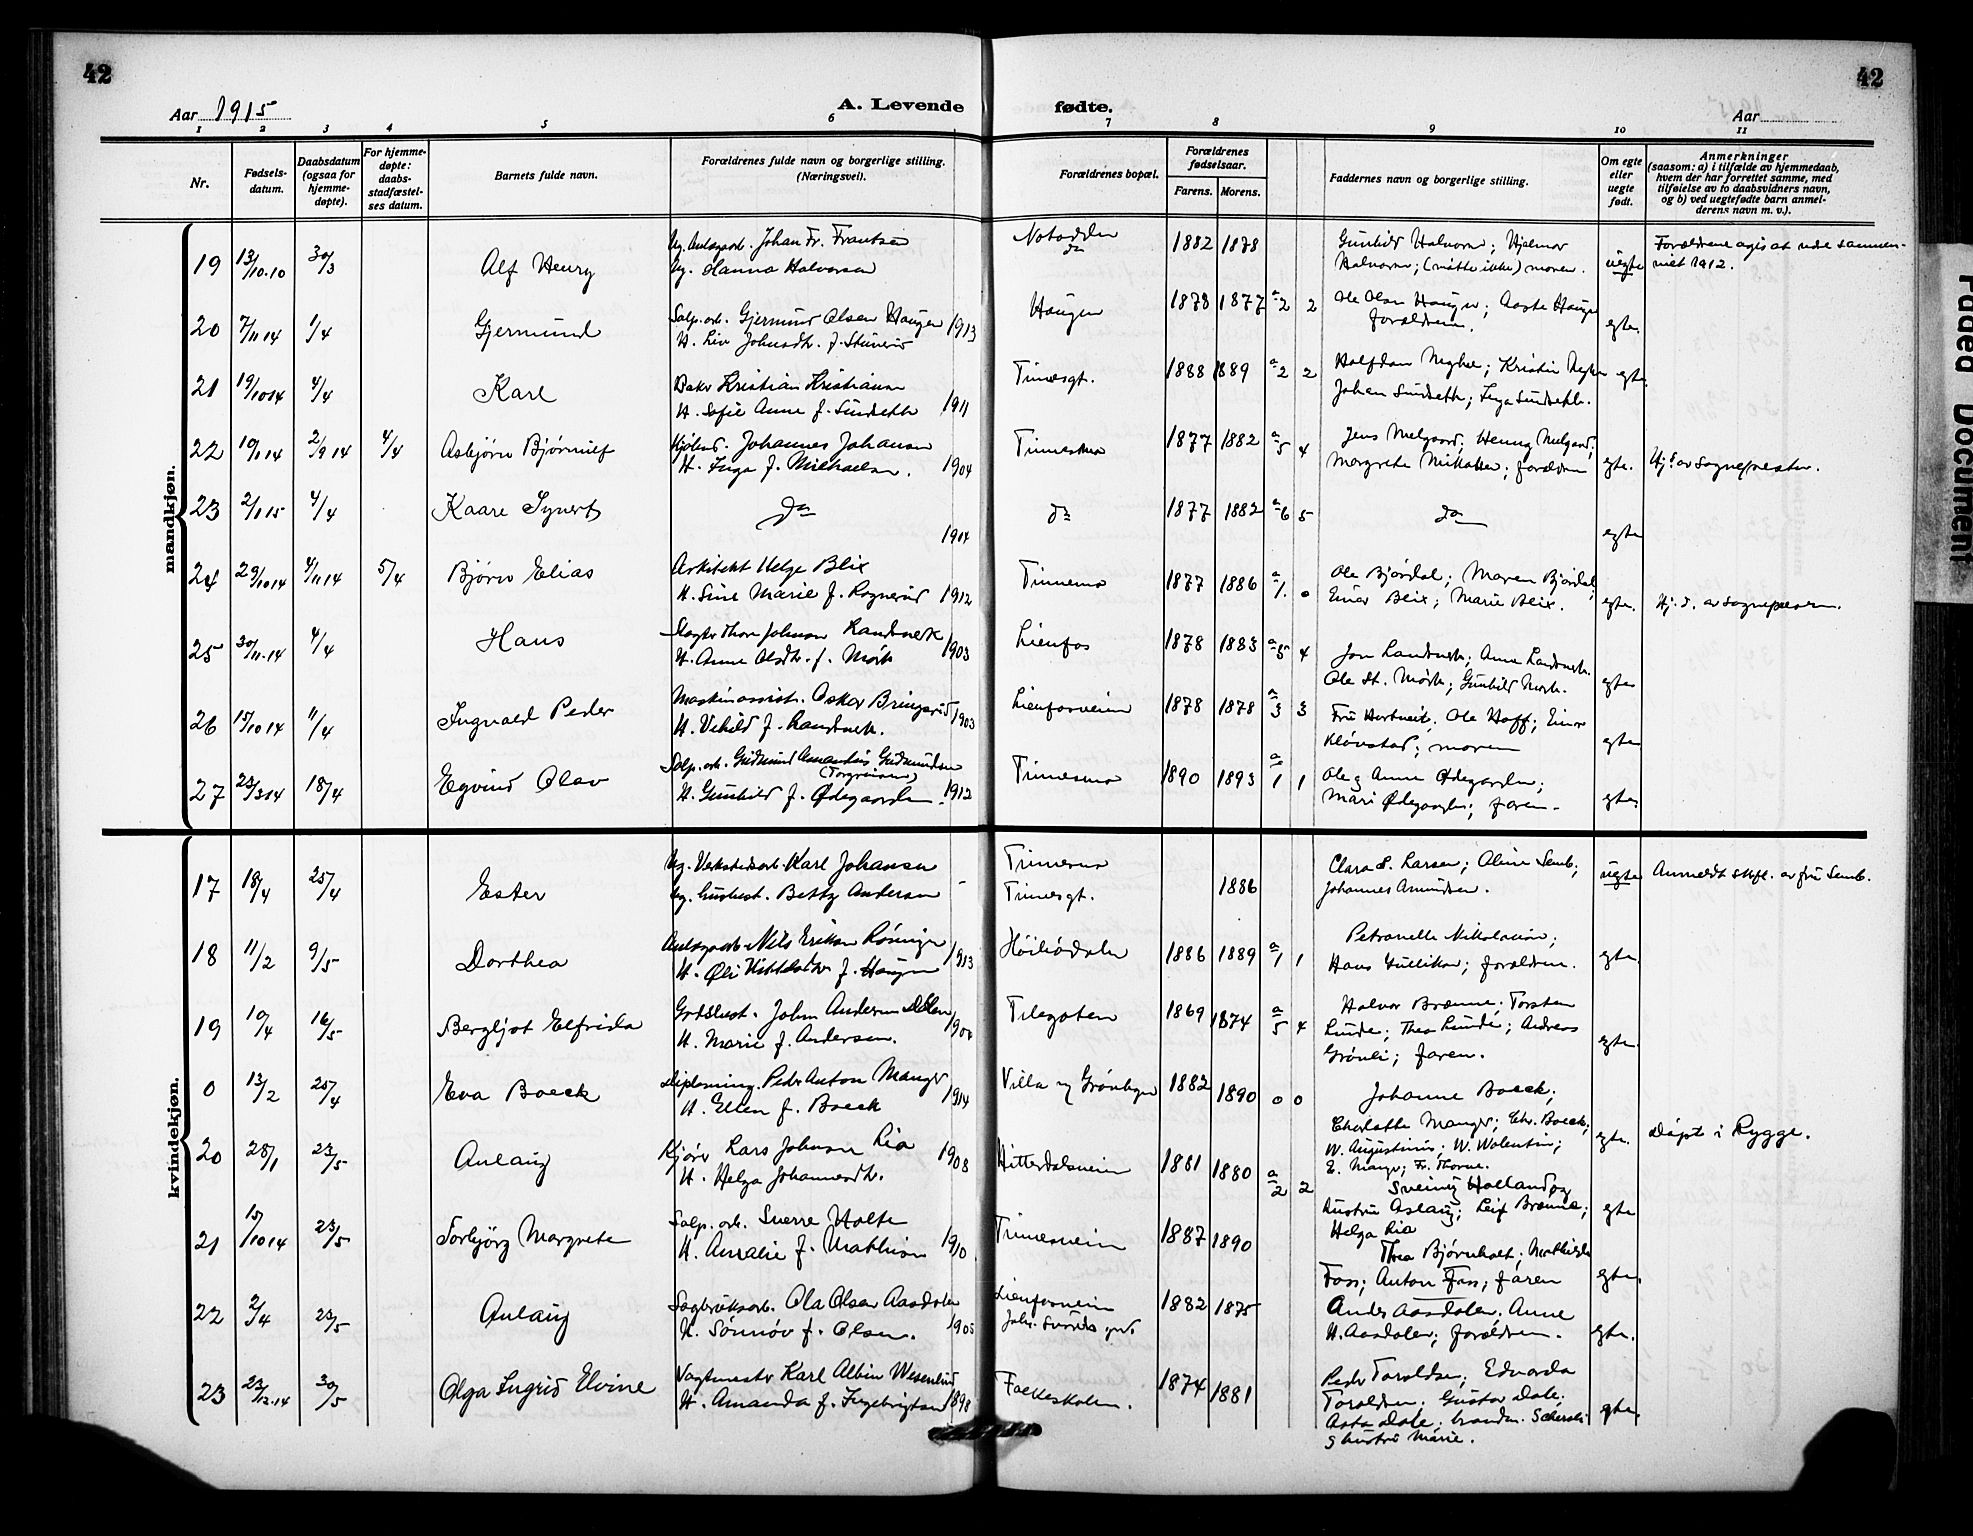 42
42
Aar 1915
A. Levende fødte.
Aar
1 2 3 4 5 6 7 8 9 10 11
Nr.
Fødsels-
datum.
Daabsdatum
(ogsaa for
hjemme-
døpte).
For hjemme-
døpte:
daabs-
stadfæstel-
ses datum.
Barnets fulde navn.
Forældrenes fulde navn og borgerlige stilling.
(Næringsvei).
Forældrenes bopæl.
Forældrenes
fødselsaar.
Farens. Morens.
Faddernes navn og borgerlige stilling.
Om egte
eller
uegte
født.
Anmerkninger
(saasom: a) i tilfælde av hjemmedaab,
hvem der har forrettet samme, med
tilføielse av to daabsvidners navn,
og b) ved uegtefødte barn anmel-
derens navn m. v.).
mandkjøn.
19 13/10-10 30/3 Alf Henry Johan Fr. Frantsen Notodden 1882 1878 Gunhild Halvorsen; Hjalmar uegte Forældrene
Ug. Hanna Halvorsen do Halvorsen; (måtte ikke) moren. 1912.
20 7/11 14 1/4 Gjermund Salp. arb. Gjermund Olsen Haugen 1913 Haugen 1878 1877 2 2 Ole Olsen Haugen; Aaste Haugen egte
H. Liv Johnsdtr. f. forældrene.
21 19/10 14 4/4 Karl Baker Kristian Kristiansen 1911 Tinnesgt. 1888 1889 2 2 Halfdan Kristin egte
H. Sofie Anne f. Sundsette Johan Sundsette;
22 10/1 14 2/9 14 4/4 Asbjørn Bjørnulf Johannes Johansen 1904 Tinnesmo 1877 1882 5 4 Jens Melgaard; Henny Melgaard; egte. Hj. d. av sognepresten.
H. Inga f. Michaelsen. Margrete forældrene
23 2/1 15 4/4 Kaare Synert do 1904 do 1877 1882 6 5 do egte
24 29/10 14 4/11 14 5/4 Bjørn Elias Arkitekt Helge Blix 1912 Tinnemo 1877 1886 1. 0 Ole Bjørdal; Maren Bjørdal; egte. Hj. d. av sognepresten.
H. Sine Marie f. Rognerud Einar Blix; Marie Blix.
25 30/11-14 4/4 Hans Slagter Thor Johnson Landsverk 1903 Lienfos 1878 1883 5 4 Jon Landsverk; Anne Landsverk egte
H. Anne Olsdtr. f. Mørk Ole St. Mørk; Gunhild Mørk.
26 15/10 14 11/4 Ingvald Peder Maskinassist. Oskar Bringsrud 1903 Lienfosveien 1878 1878 3 3 Fru Ole Hoff; Einar egte
H. Vehild f. Landsverk. Kløvstad; moren
27 23/3 14 18/4 Eyvind Olav Salp. arb. Gudmund Amandus Gudmundsen 1912 Tinnesmo 1890 1893 1 1 Ole og Anne Ødegaarden; egte
(Torgeirsen)
H. Gunhild f. Ødegaarden. Mari Ødegaarden; faren.
kvindekjøn.
17 18/4 25/4 Ester Ug. Verkstedsarb. Karl Johansen - Tinnesmo 1886 Clara S. Larsen; Aline Semb; uegte Anmeldt skfl. av fru Semb.
Ug. Betty Andersen Tinnesgt. Johannes Amundsen.
18 11/2 9/5 Dorthea Anlægsarb. Nils Eriksen 1913 1886 1889 1 1 Petronelle Nikolaisen; egte
H. f. Haugen Hans Gulliksen; forældrene.
19 10/4 16/5 Bergljot Elfrida John Andersen Dalen Telegaten 1869 1874 5 4 Halvor Brænne; Torsten egte
H. Marie f. Andersen. Lunde; Thea Lunde; Andreas
Grønli; faren.
0 13/2 25/4 Eva Boeck Diplomeing. Peder Anton Manger 1914 Villa ny Grønbyen 1882 1890 0 0 Johanne Boeck; egte. Døpt i Rygge.
H. Ellen f. Boeck Charlotte Manger; Chr. Boeck;
W. Augustinus; W. Valentin;
E. Manger; Fr. Thorne.
20 28/1 23/5 Aulaug Kjører Lars Johnsen Lia 1908 Hitterdalsveien 1881 1880 2 2 Sveinig Holland og egte
H. Helga Johannesdtr. hustru Aslaug; Leif Brænne;
Helga Lia
21 15/10 14 23/5 Torbjørg Margrete Salp. arb. Sverre Holte 1910 Tinnesveien 1887 1890 Thea Bjørnholt; Mathilde egte.
H. Amalie f. Mathisen Foss; Anton Foss; faren
22 2/4 23/5 Aulaug Sagbruksarb. Ola Olsen Aasdalen 1905 Lienfosveien 1882 1875 Anders Aasdalen. Anne egte.
H. Sønnøv f. Olsen. H. Aasdalen; forældrene.
23 23/12-14 30/5 Olga Ingrid Elvine Vagtmester Karl Albin Wesenlund 1898 Folkeskolen. 1874 1881 Peder Toraldsen; Edvarda egte.
H. Amanda f. Ingebrigtsen Toraldsen; Gustav Dale;
Asta Dale;
og hustru Marie.
Faded Document